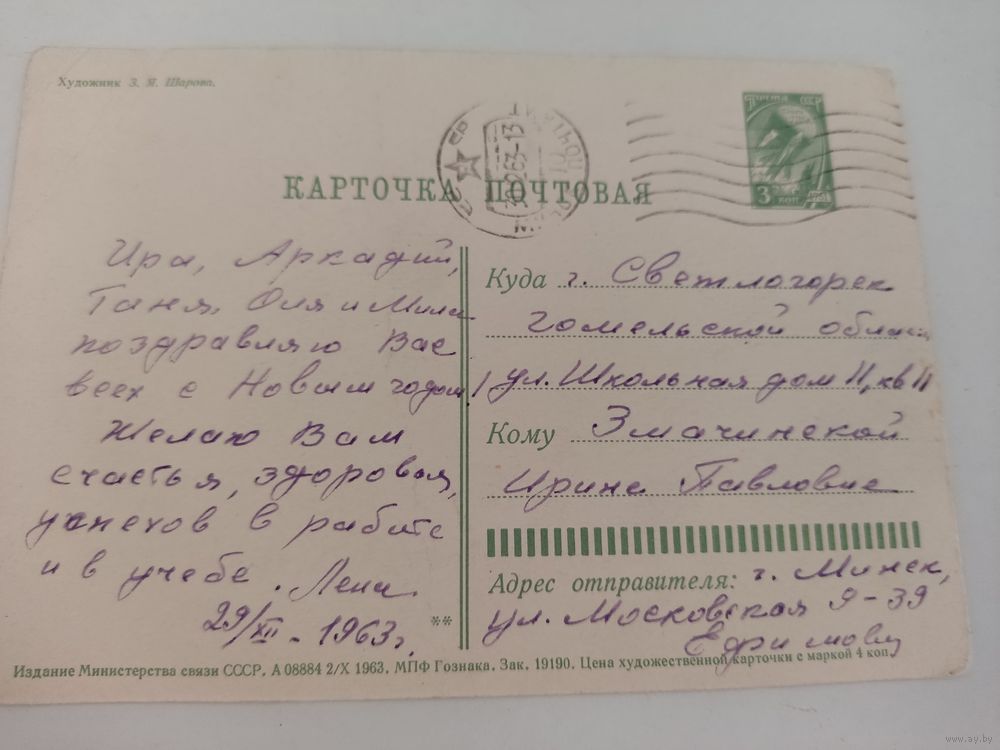 Художник З. Я. Шарова.
ПОЧТА СССР
3 коп
63-13
КАРТОЧКА ПОЧТОВАЯ
Ира, Аркадий,
Таня, Оля и Мила
поздравляю Вас
всех с Новым годом!
Желаю Вам
счастья, здоровья,
успехов в работе
и в учебе. Лена.
29/XII - 1963г.
Куда г. Светлогорск
Гомельской области
ул. Школьная дом 11, кв 11
Кому Змачинской
Ирине Павловне
Адрес отправителя: г. Минск,
ул. Московская 9-39
**
Издание Министерства связи СССР. А 08884 2/X 1963. МПФ Гознака. Зак. 19190. Цена художественной карточки с маркой 4 коп.
www.ay.by